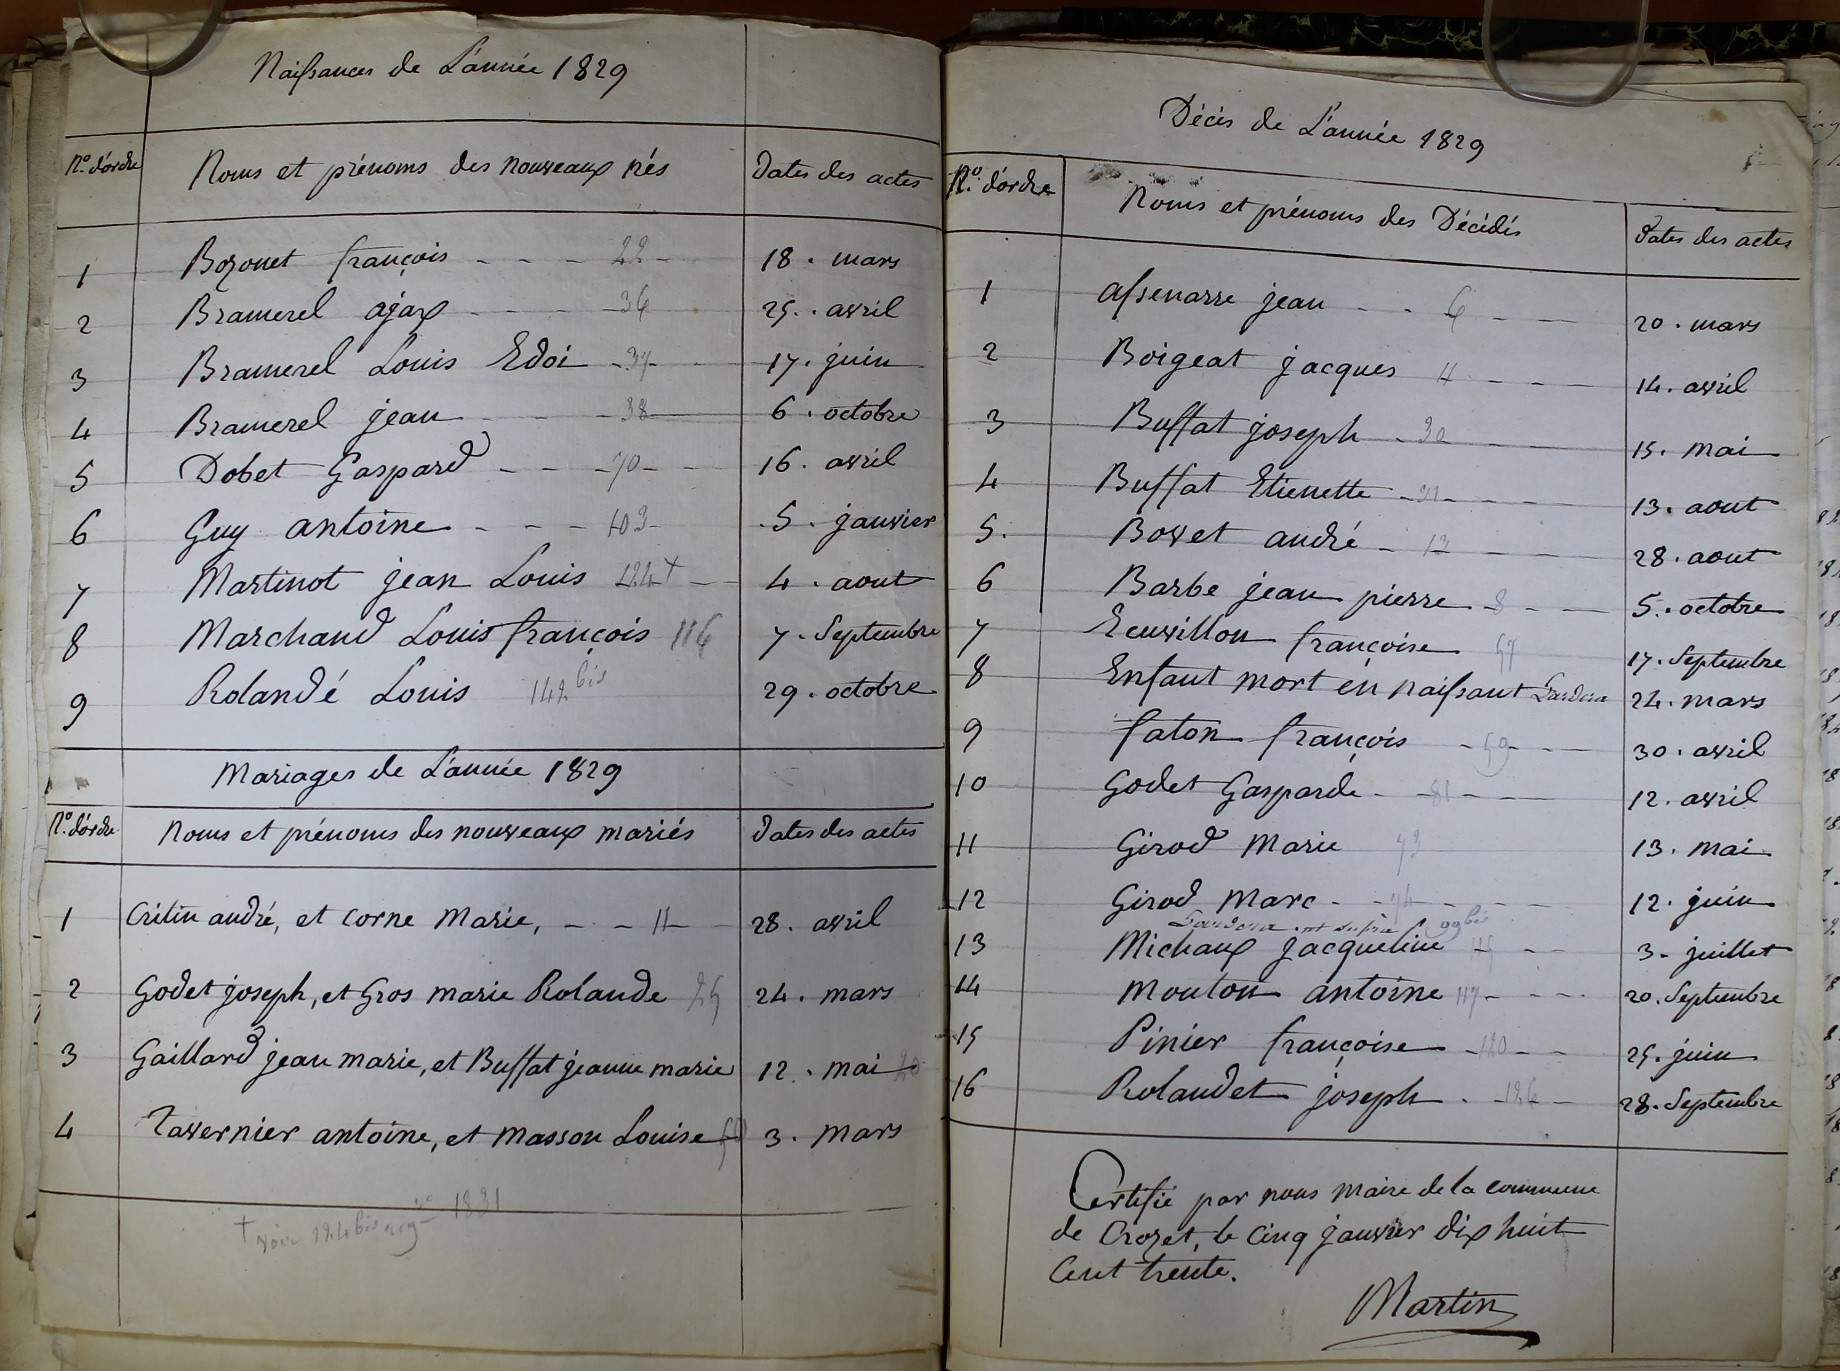 Naissances de L'année 1829
N.o d'ordre Noms et prénoms des nouveaux nés Dates des actes
1 Bozonet françois 22 18. mars
2 Bramerel ajax 36 25. avril
3 Bramerel Louis Edoi 37 17. juin
4 Bramerel jean 38 6. octobre
5 Dobet Gaspard 70 16. avril
6 Guy antoine 103 5. janvier
7 Martinot jean Louis 124 + 4. aout
8 Marchand Louis françois 116 7. Septembre
9 Rolandé Louis 142 bis 29. octobre
Mariages de L'année 1829
N.o d'ordre Noms et prénoms des nouveaux mariés Dates des actes
1 Critin andré, et Corne Marie, 11 28. avril
2 Godet joseph, et Gros marie Rolande 25 24. mars
3 Gaillard jean marie, et Buffat jeanne marie 12. mai
4 Tavernier antoine, et Masson Louise 3. Mars
+ voir 124 bis 1831
Décès de L'année 1829
N.o d'ordre Noms et prénoms des Décédés Dates des actes
1 assenarre jean 6 20. mars
2 Boigeat jacques 11 14. avril
3 Buffat joseph 30 15. mai
4 Buffat Etienette 31 13. aout
5. Bovet andré 12 28. aout
6 Barbe jean pierre 8 5. octobre
7 Ecuvillon françoise 57 17. Septembre
8 Enfant mort en naissant 24. mars
9 faton françois 59 30. avril
10 Godet Gasparde 81 12. avril
11 Girod Marie 73 13. mai
12 Girod Marc 74 12. juin
ut supra 99 bis
13 Michaux jacqueline 115 3. juillet
14 Mouton antoine 117 20. Septembre
15 Pinier françoise 120 25. juin
16 Rolandet joseph 126 28. Septembre
Certifié par nous Maire de la commune
de Crozet, le Cinq janvier dix huit
Cent trente.
Martin